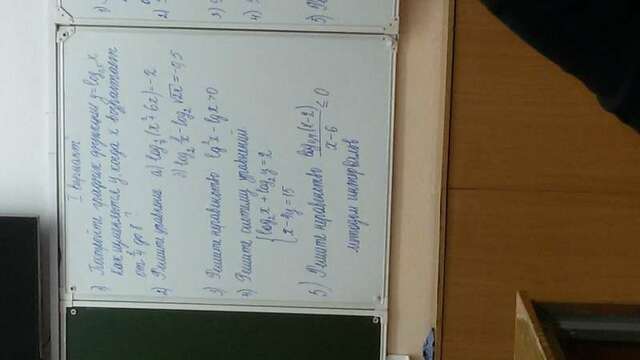 I вариант
1) Постройте график функции y=log₀,₅ x
Как изменяется y, когда x возрастает
от 1/4 до 8?
2) Решите уравнение а) log₁/₃(x²+6x)=-2
б) log₂ 2/x - log₂ √2x = -0,5
3) Решите неравенство lg²x - lgx > 0
4) Решите систему уравнений
log₂x + log₂y = 2
x - 4y = 15
5) Решите неравенство (x-2) / x-6 ≤ 0
методом интервалов